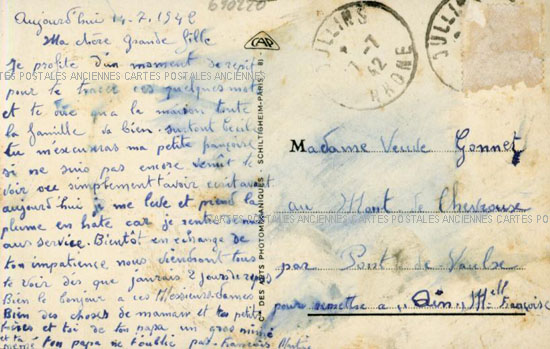 690220
Aujourd'hui 14-2-1942
Ma chère Grande fille
Je profite d'un moment de répit
pour te tracer ces quelques mots
et te dire qu'a la maison toute
la famille va bien. surtout
tu m'excuseras ma petite françoise
si je suis pas encore venut te
voir ou simplement t'avoir écrit avant
aujourd'hui je me leve et prend la
plume en hate car je rentre
au service. Bientôt en échange de
ton impatience nous viendrons tous
te voir dès que j'aurais 2 jours de repos
Bien le bonjour a ces Messieurs-dames.
Bien des choses de maman et tes petits
frères et toi de ton papa un gros mimi
et ta mémé ton papa ne t'oublie pas. François
CAP
Cie DES ARTS PHOTOMECANIQUES - SCHILTIGHEIM-PARIS
JULLIÉ
7-7
42
RHONE
JULLIÉ
Madame Veuve Gonnet
au Mont de Chevroux
par Pont de Vaulx
pour remettre a Ain Mell Françoise
CARTES POSTALES ANCIENNES CARTES POSTALES ANCIENNES CARTES POSTALES ANCIENNES
CARTES POSTALES ANCIENNES CARTES POSTALES ANCIENNES CARTES POSTALES ANCIENNES